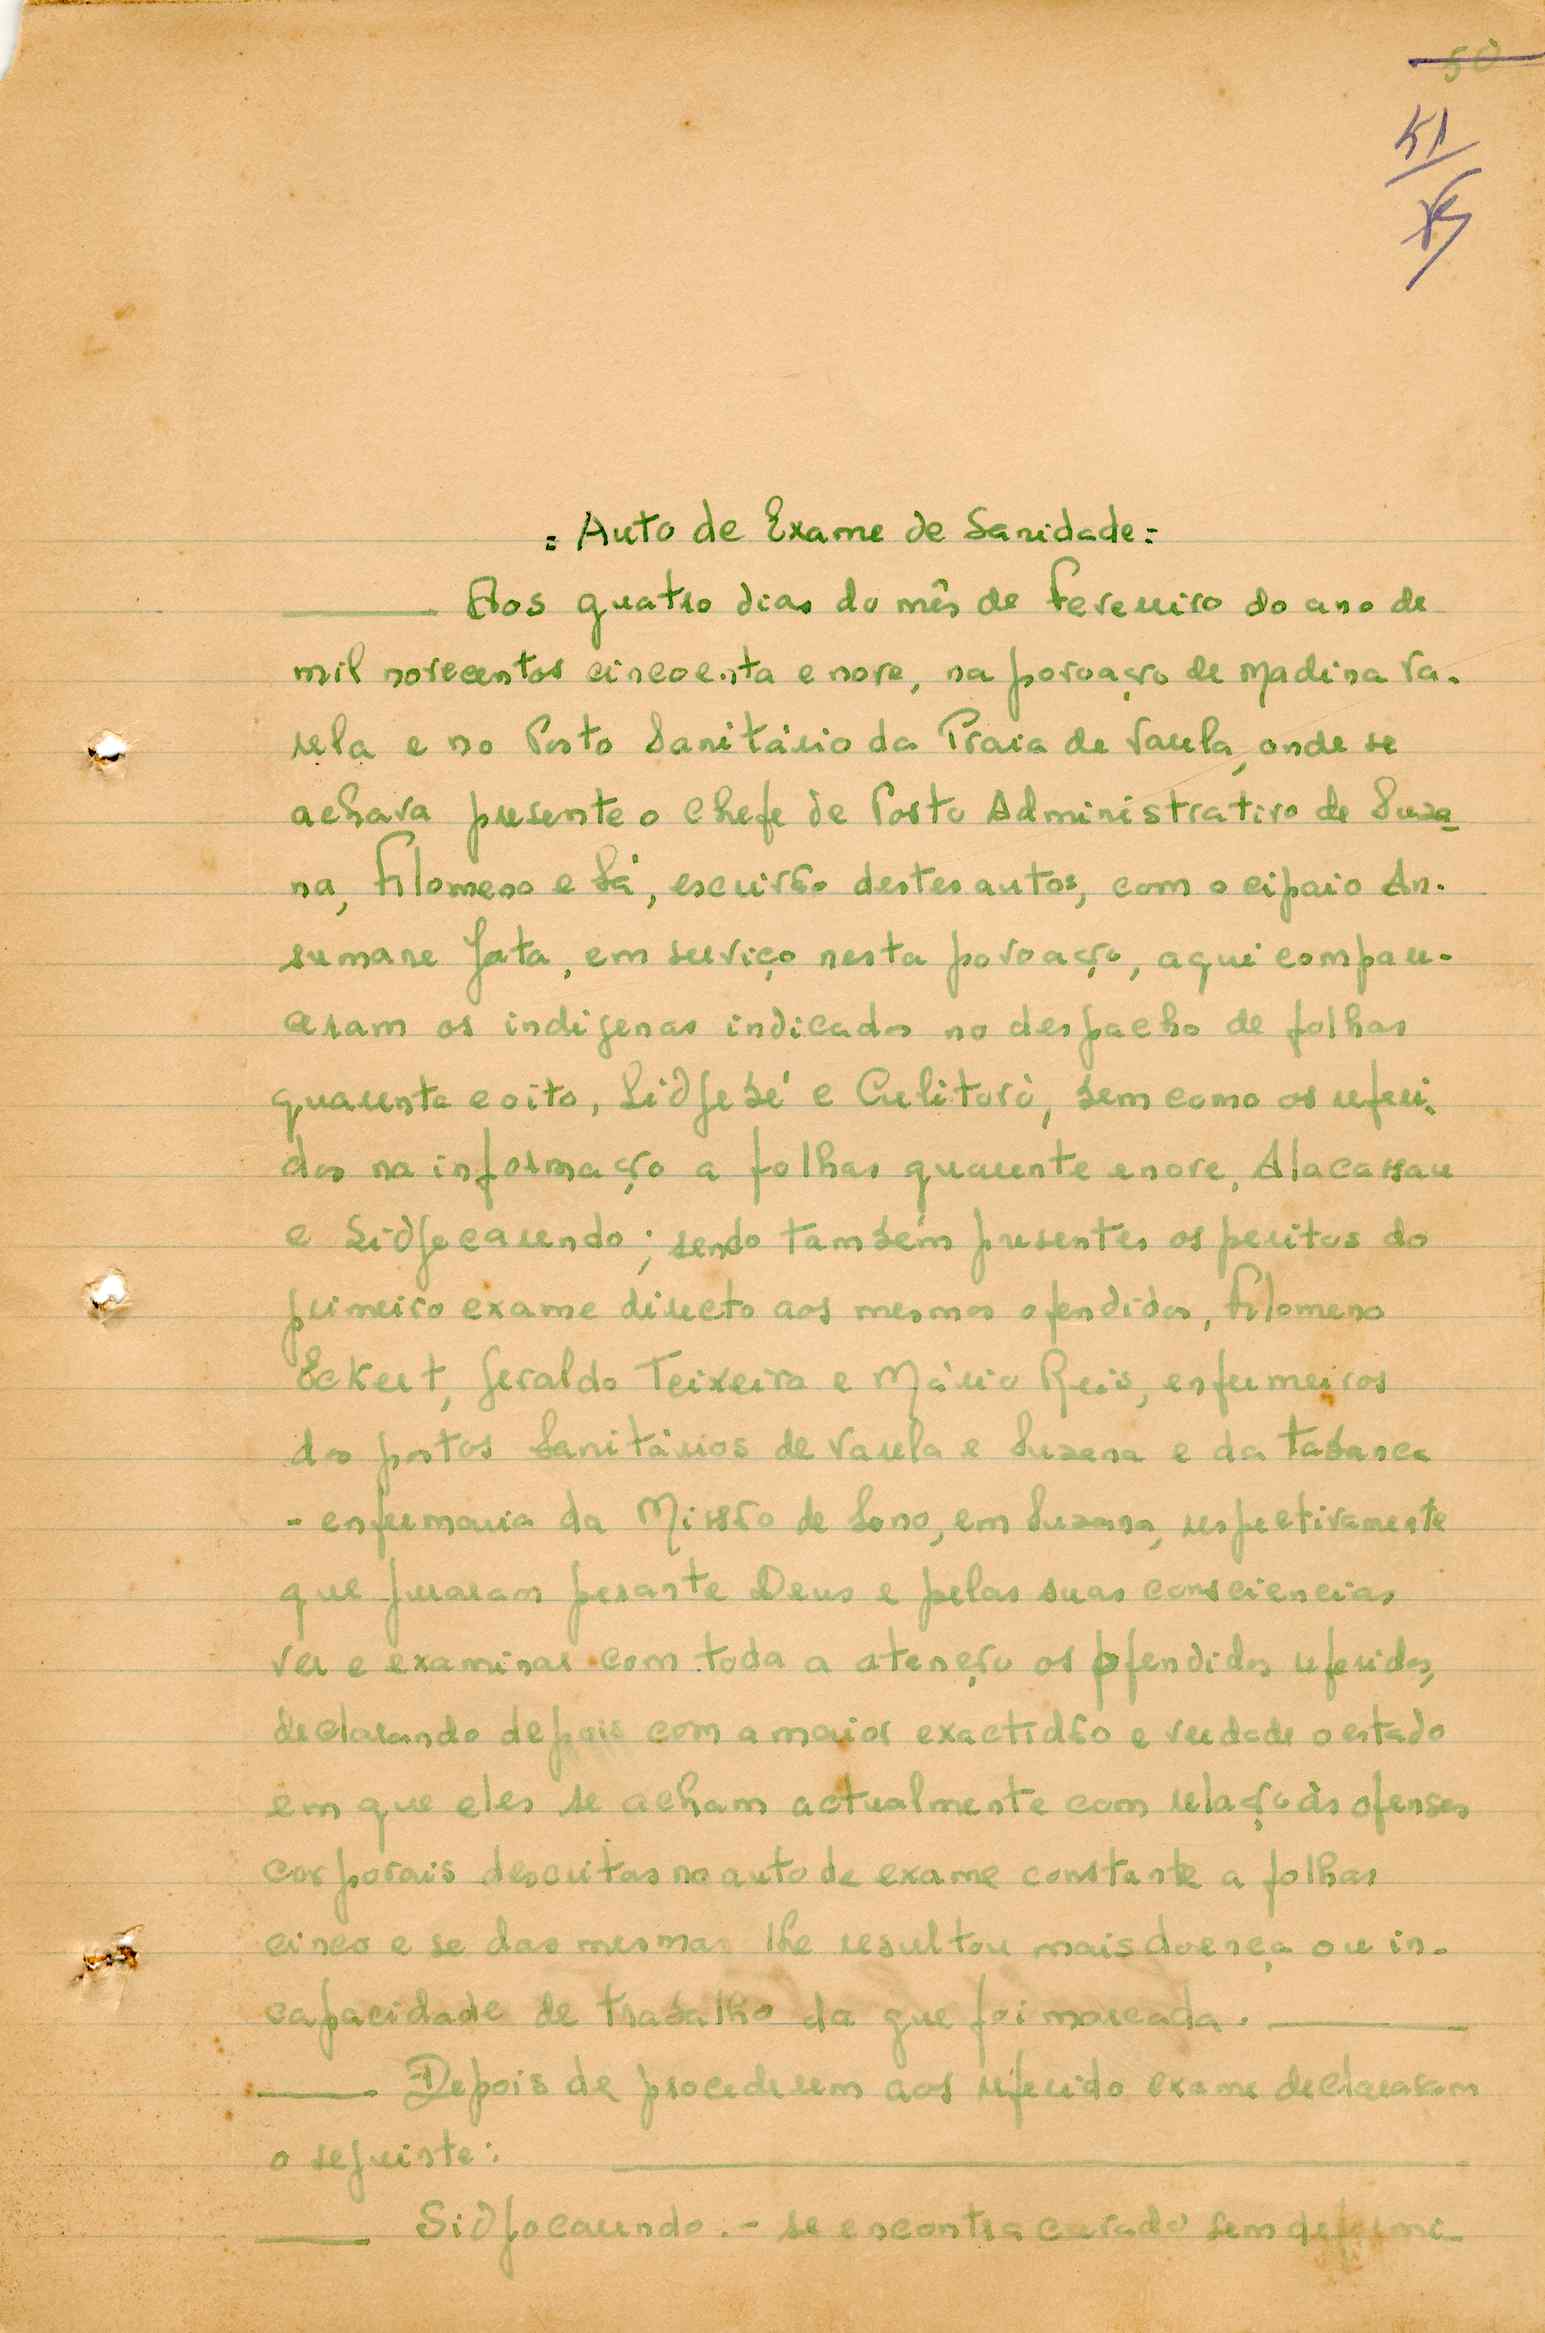 50
51
= Auto de Exame de Sanidade =
Aos quatro dias do mês de Fevereiro do ano de
mil novecentos cincoenta e nove, na povoação de Madina Va-
rela e no Posto Sanitário da Praia de Varela, onde se
achava presente o Chefe de Posto Administrativo de Suza
na, Filomeno e Sá, escrivão destes autos, com o cipaio An-
sumane Jata, em serviço nesta povoação, aqui compare-
ceram os indígenas indicados no despacho de folhas
quarenta e oito, Sidjebé e Culitorò, bem como os referi-
dos na informação a folhas quarenta e nove, Alacassau
e Sidjocarendo; sendo também presentes os peritos do
primeiro exame directo aos mesmos ofendidos, Filomeno
Eckert, Geraldo Teixeira e Mário Reis, enfermeiros
dos postos Sanitários de Varela e Suzana e da tabanca
- enfermaria da Missão de Sono, em Suzana, respectivamente
que juraram perante Deus e pelas suas consciencias
ver e examinar com toda a atenção os ofendidos referidos,
declarando depois com a maior exactidão e verdade o estado
em que eles se acham actualmente com relação às ofensas
corporais descritas no auto de exame constante a folhas
cinco e se das mesmas lhe resultou mais doença ou in-
capacidade de trabalho da que foi marcada.
Depois de procederem aos referido exame declararam
o seguinte:
Sidjocarendo. - se encontra curado sem deformi-